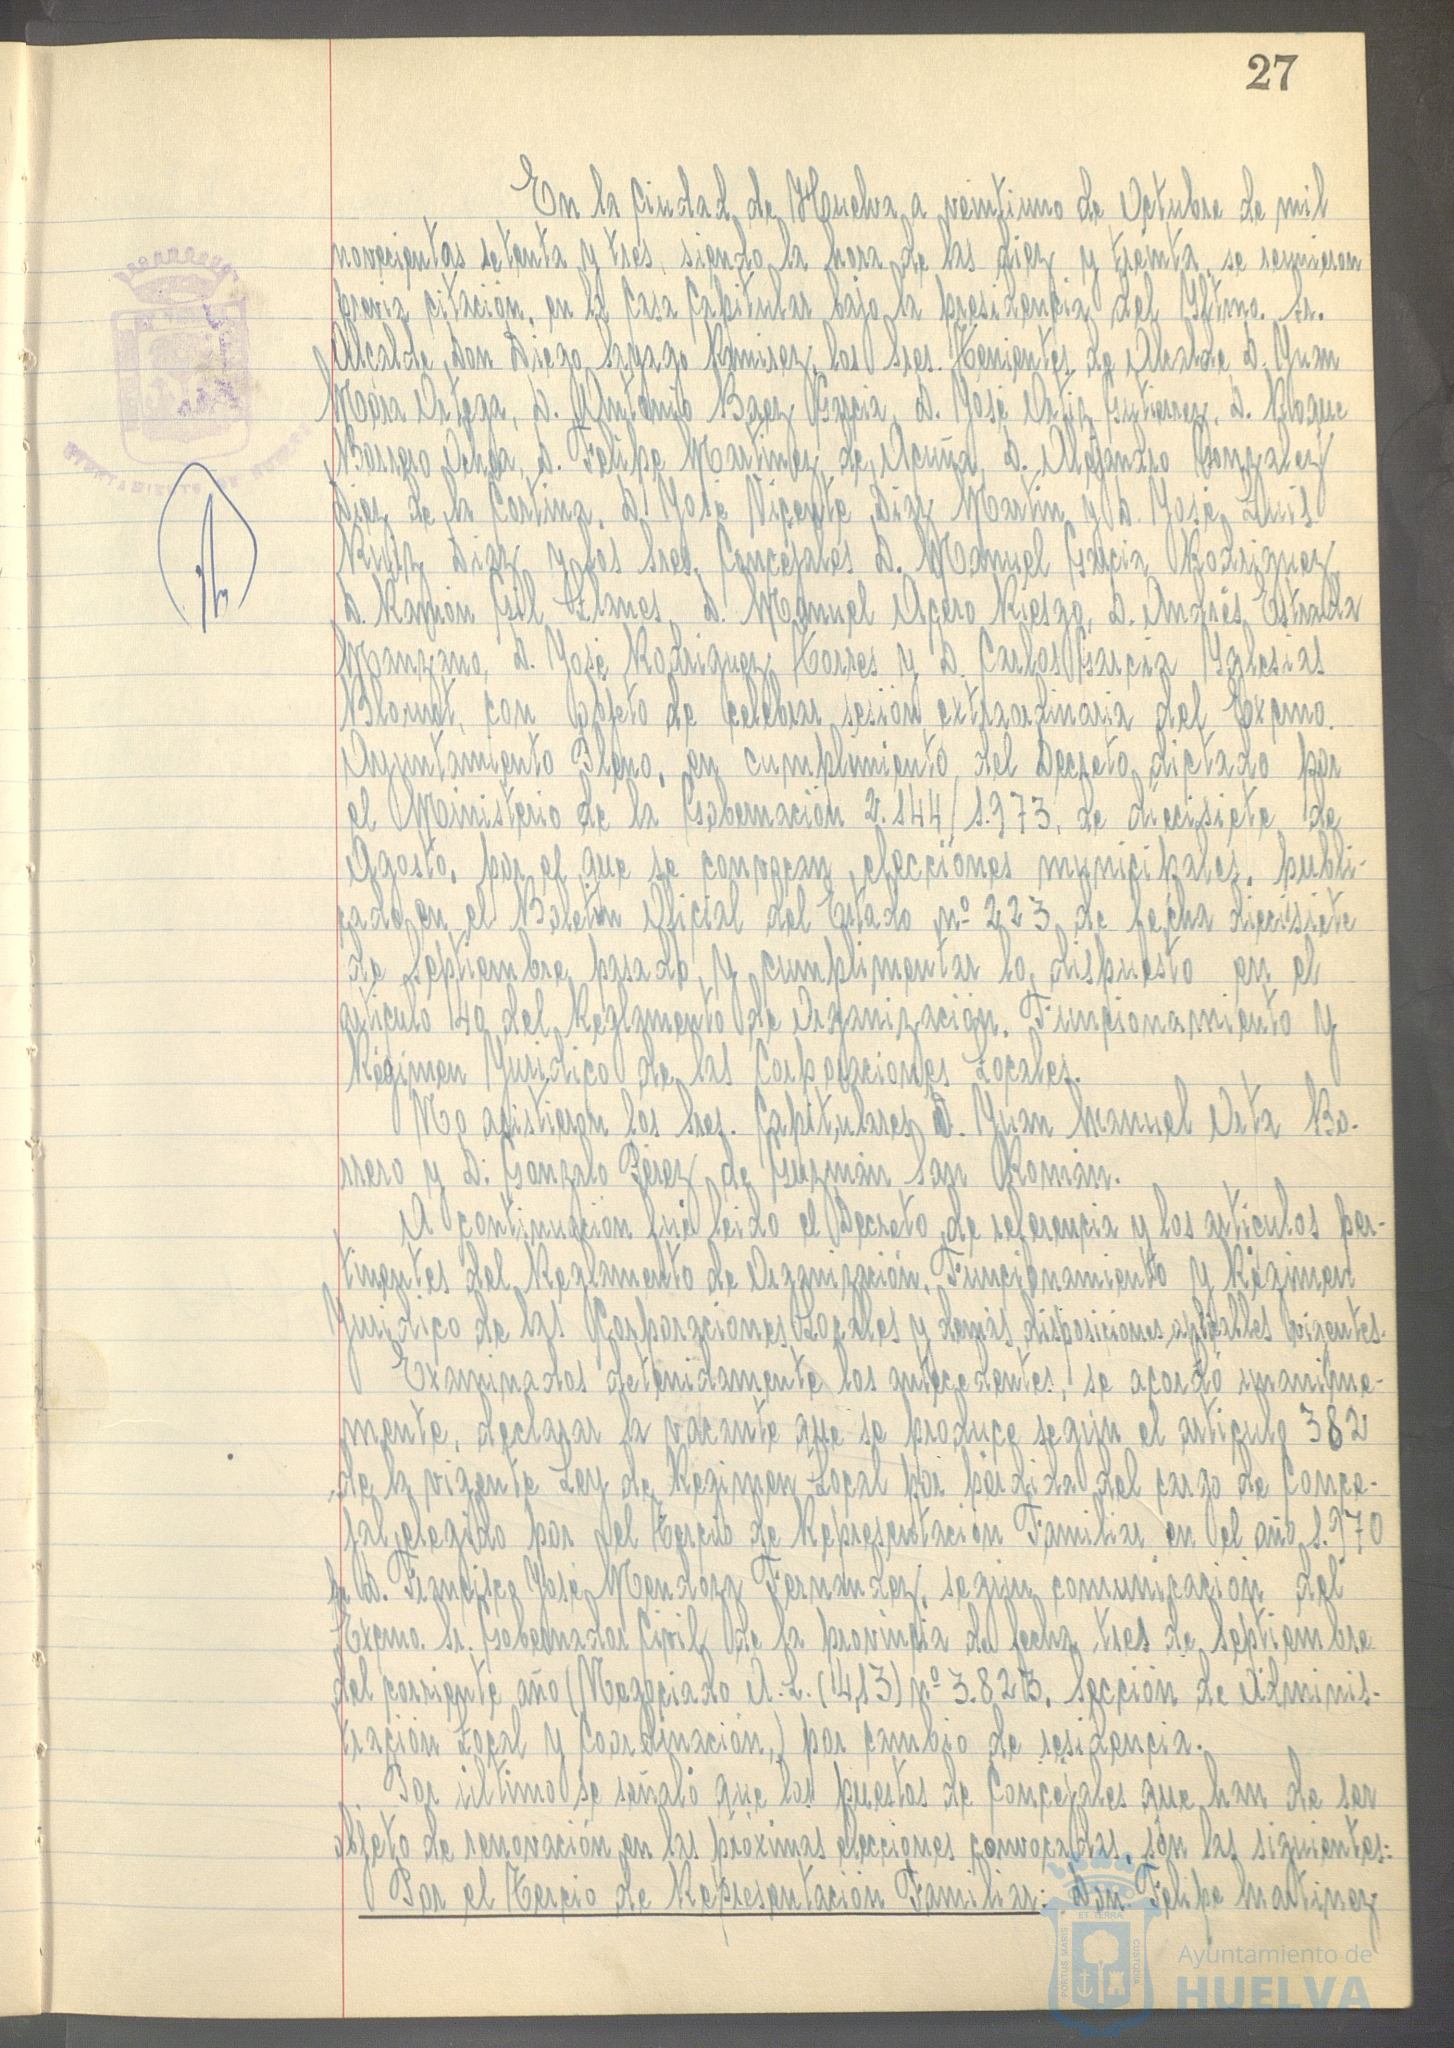 27
En la Ciudad de Huelva a veintiuno de Octubre de mil
novecientos setenta y tres, siendo la hora de las diez y treinta, se reunieron
previa citación, en la Casa Capitular bajo la presidencia del Yltmo. Sr.
Alcalde, Don Diego Sayago Ramirez, los Sres. Tenientes de Alcalde, D. Juan
Mora Ortega, D. Antonio Baez Garcia, D. José Ortiz Gutierrez, D. Roque
Barrero Ochoa, D. Felipe Martinez de Acuña, D. Alejandro Gonzalez
Diez de la Cortina, D. José Vicente Diaz Martin y D. José Luis
Ruiz Diaz y los Sres. Concejales D. Manuel Garcia Rodriguez,
D. Ramón Gil Llanes, D. Manuel Acero Riesgo, D. Andrés Estrada
Manzano, D. José Rodriguez Torres y D. Carlos Garcia Yglesias
con objeto de celebrar sesión extraordinaria del Excmo.
Ayuntamiento Pleno, en cumplimiento del Decreto dictado por
el Ministerio de la Gobernación 2.144/1.973, de diecisiete de
Agosto, por el que se convocan elecciones municipales, publi-
cado en el Boletín Oficial del Estado nº 223 de fecha diecisiete
de Septiembre pasado, y cumplimentar lo dispuesto en el
articulo 40 del Reglamento de Organización, Funcionamiento y
Régimen Juridico de las Corporaciones Locales.
No asistieron los Sres. Capitulares D. Juan Manuel Orta Bo-
rrero y D. Gonzalo Pérez de Guzmán San Román.
A continuación fué leido el Decreto de referencia y los articulos per-
tinentes del Reglamento de Organización, Funcionamiento y Régimen
Juridico de las Corporaciones Locales y demás disposiciones aplicables vigentes.
Examinados detenidamente los antecedentes, se acordó unanime-
mente, declarar la vacante que se produce según el articulo 382
de la vigente Ley de Regimen Local por pérdida del cargo de Conce-
jal elegido por el Tercio de Representación Familiar en el año 1.970
D. Francisco José Mendoza Fernandez, según comunicación del
Excmo. Sr. Gobernador Civil de la provincia de fecha tres de Septiembre
del corriente año (Negociado A.L. (4,13) nº 3.823, Sección de Adminis-
tración Local y Coordinación,) por cambio de residencia.
Por último se señaló que los puestos de Concejales que han de ser
objeto de renovación en las próximas elecciones convocadas, son las siguientes:
Por el Tercio de Representación Familiar: Don Felipe Martinez
ET TERRA
PORTUS MARIS
CUSTODIA
Ayuntamiento de
HUELVA